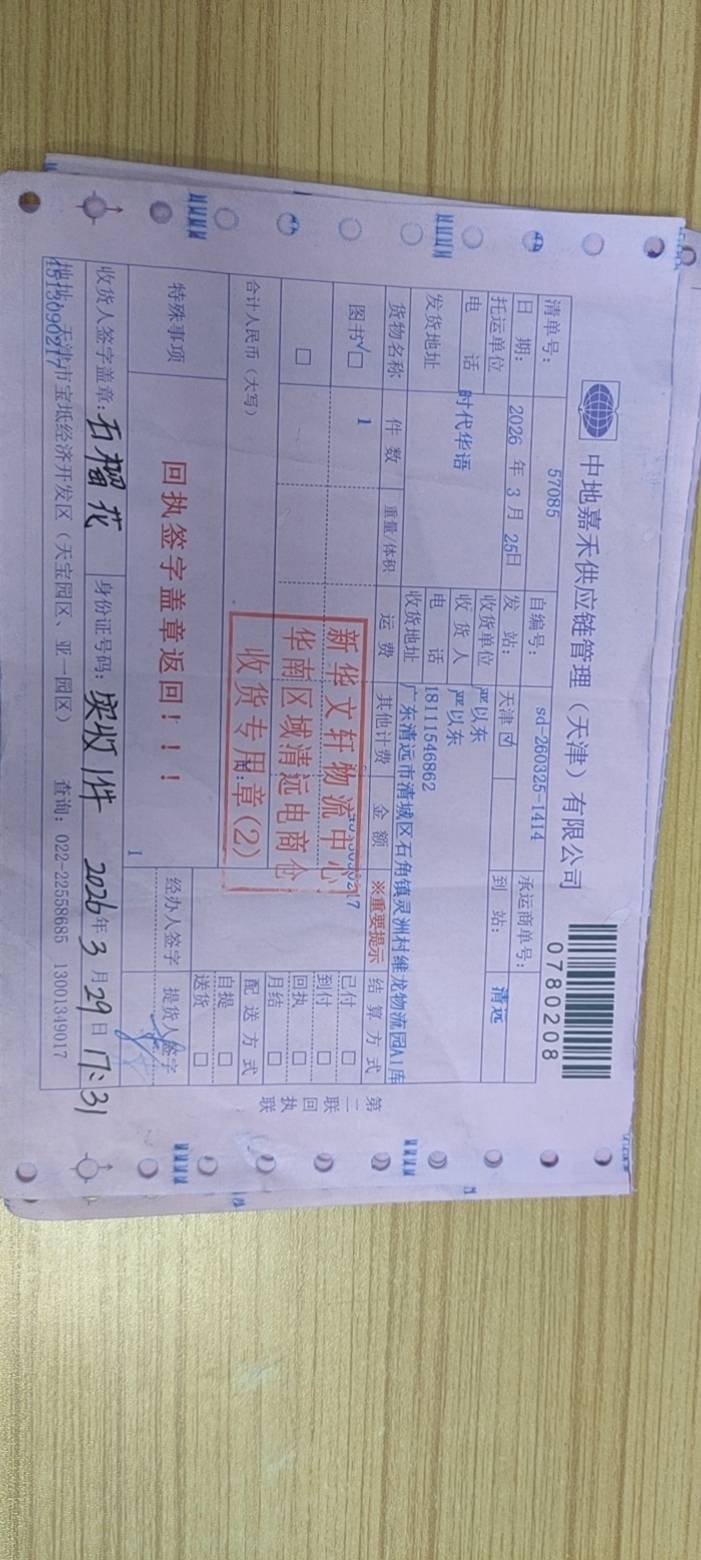 中地嘉禾供应链管理（天津）有限公司
0780208
清单号： 57085 自编号： sd-260325-1414 承运商单号：
日 期： 2026 年 3 月 25日 发 站： 天津 ☑ 到 站： 清远
托运单位 时代华语 收货单位 严以东
电 话 收 货 人 严以东
发货地址 电 话 18111546862
收货地址 广东清远市清城区石角镇灵洲村维龙物流园A1库
货物名称 件 数 重量/体积 运 费 其他计费 金 额 ※重要提示 结 算 方 式
图书√□ 1 已付 □
到付 □
□ 回执 □
月结 □
新华文轩物流中心
华南区域清远电商仓
收货专用章(2)
合计人民币（大写） 配 送 方 式
自提 □
送货 □
特殊事项 回执签字盖章返回！！！ 1 经办人签字 提货人签字
收货人签字盖章： 石榴花 身份证号码： 实收1件 2026年3月29日 17:31
地址：天津市宝坻经济开发区（天宝园区、亚一园区） 查询：022-22558685 13001349017
第二联 回执联